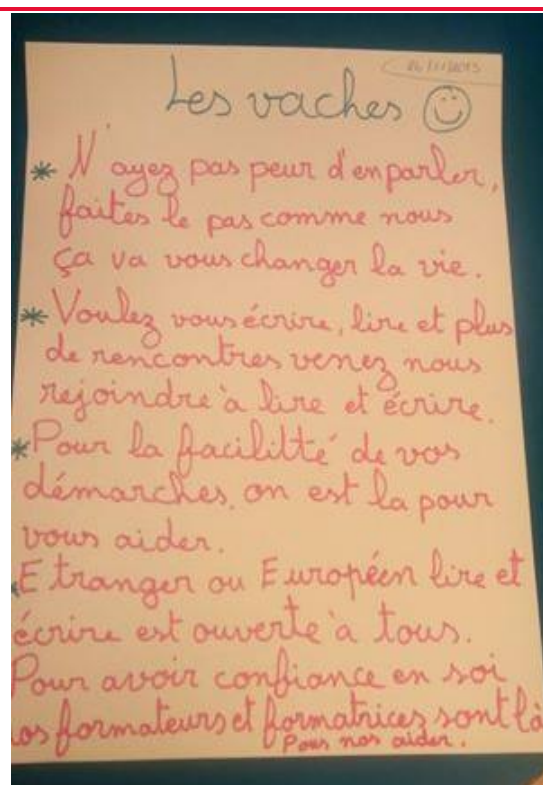 26/11/2013
Les vaches
* N'ayez pas peur d'en parler,
faites le pas comme nous
ça va vous changer la vie.
* Voulez vous écrire, lire et plus
de rencontres venez nous
rejoindre à lire et écrire.
* Pour la facilitté de vos
démarches, on est la pour
vous aider.
Etranger ou Européen lire et
écrire est ouverte à tous.
Pour avoir confiance en soi
os formateurs et formatrices sont là
Pour nos aider.